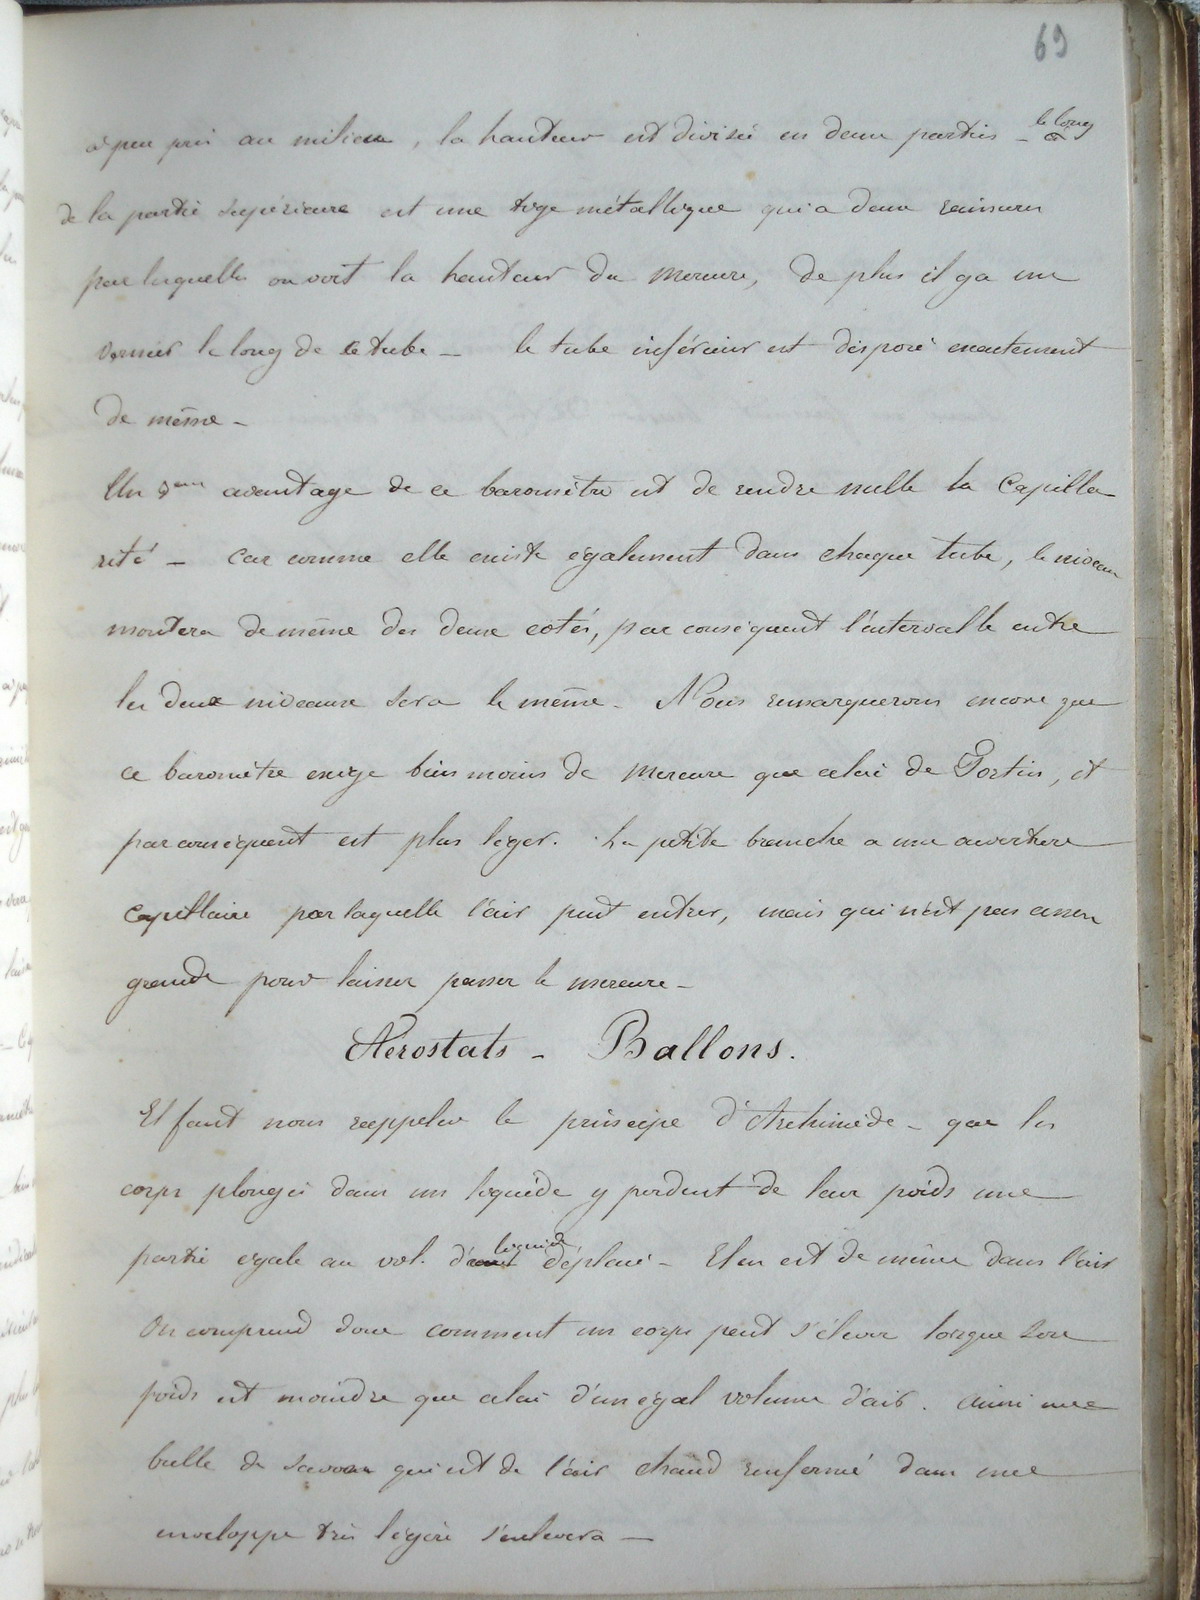 69
à peu près au milieu, la hauteur est divisée en deux parties – le long
de la partie supérieure est une tige métallique qui a deux rainures
par laquelle on voit la hauteur du mercure, de plus il y a un
vernier le long de ce tube – le tube inférieur est disposé exactement
de même –
Un 2eme avantage de ce baromètre est de rendre nulle la Capilla
rité – car comme elle existe également dans chaque tube, le niveau
montera de même des deux cotés, par conséquent l'intervalle entre
les deux niveaux sera le même – Nous remarquerons encore que
ce baromètre exige bien moins de mercure que celui de Fortin, et
par conséquent est plus léger. La petite branche a une ouverture
capillaire par laquelle l'air peut entrer, mais qui n'est pas assez
grande pour laisser passer le mercure –
Aérostats – Ballons.
Il faut nous rappeler le principe d'Archimède – que les
corps plongés dans un liquide y perdent de leur poids une
partie égale au vol. de liquide déplacé – Il en est de même dans l'air
On comprend donc comment un corps peut s'élever lorsque son
poids est moindre que celui d'un égal volume d'air. Ainsi une
bulle de savon qui est de l'air chaud renfermé dans une
enveloppe très légère s'enlevera –